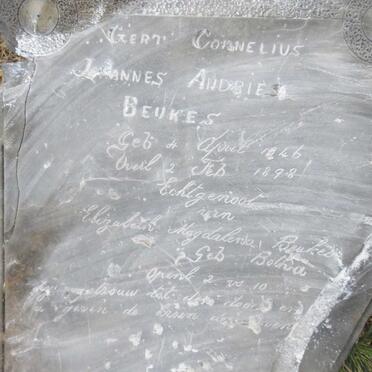 Gert Cornelius
Johannes Andries
Beukes
Geb 4 April 1846
Overl 2 Feb 1898
Echtgenoot
van
Elizabeth Magdalena Beukes
Geb Botha
Openb 2 vs 10
getrouw tot den dood en
u geven de kroon des